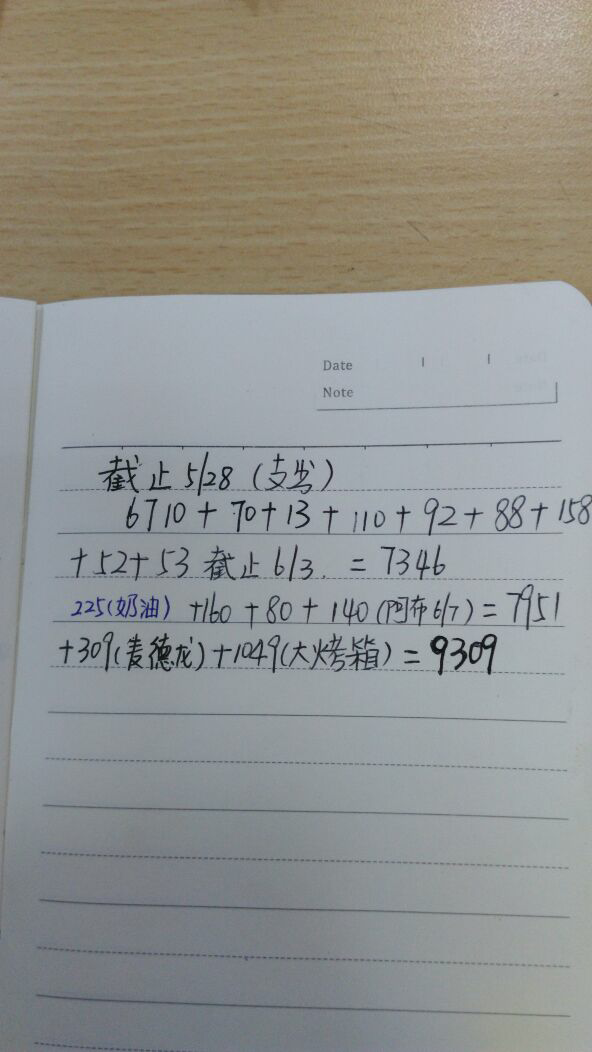 Date
Note
截止 5/28 (支出)
6710 + 70 + 13 + 110 + 92 + 88 + 158
+ 52 + 53 截止 6/3. = 7346
225(奶油) +160 + 80 + 140 (阿布 6/7) = 7951
+309(麦德龙) +1049(大烤箱) = 9309